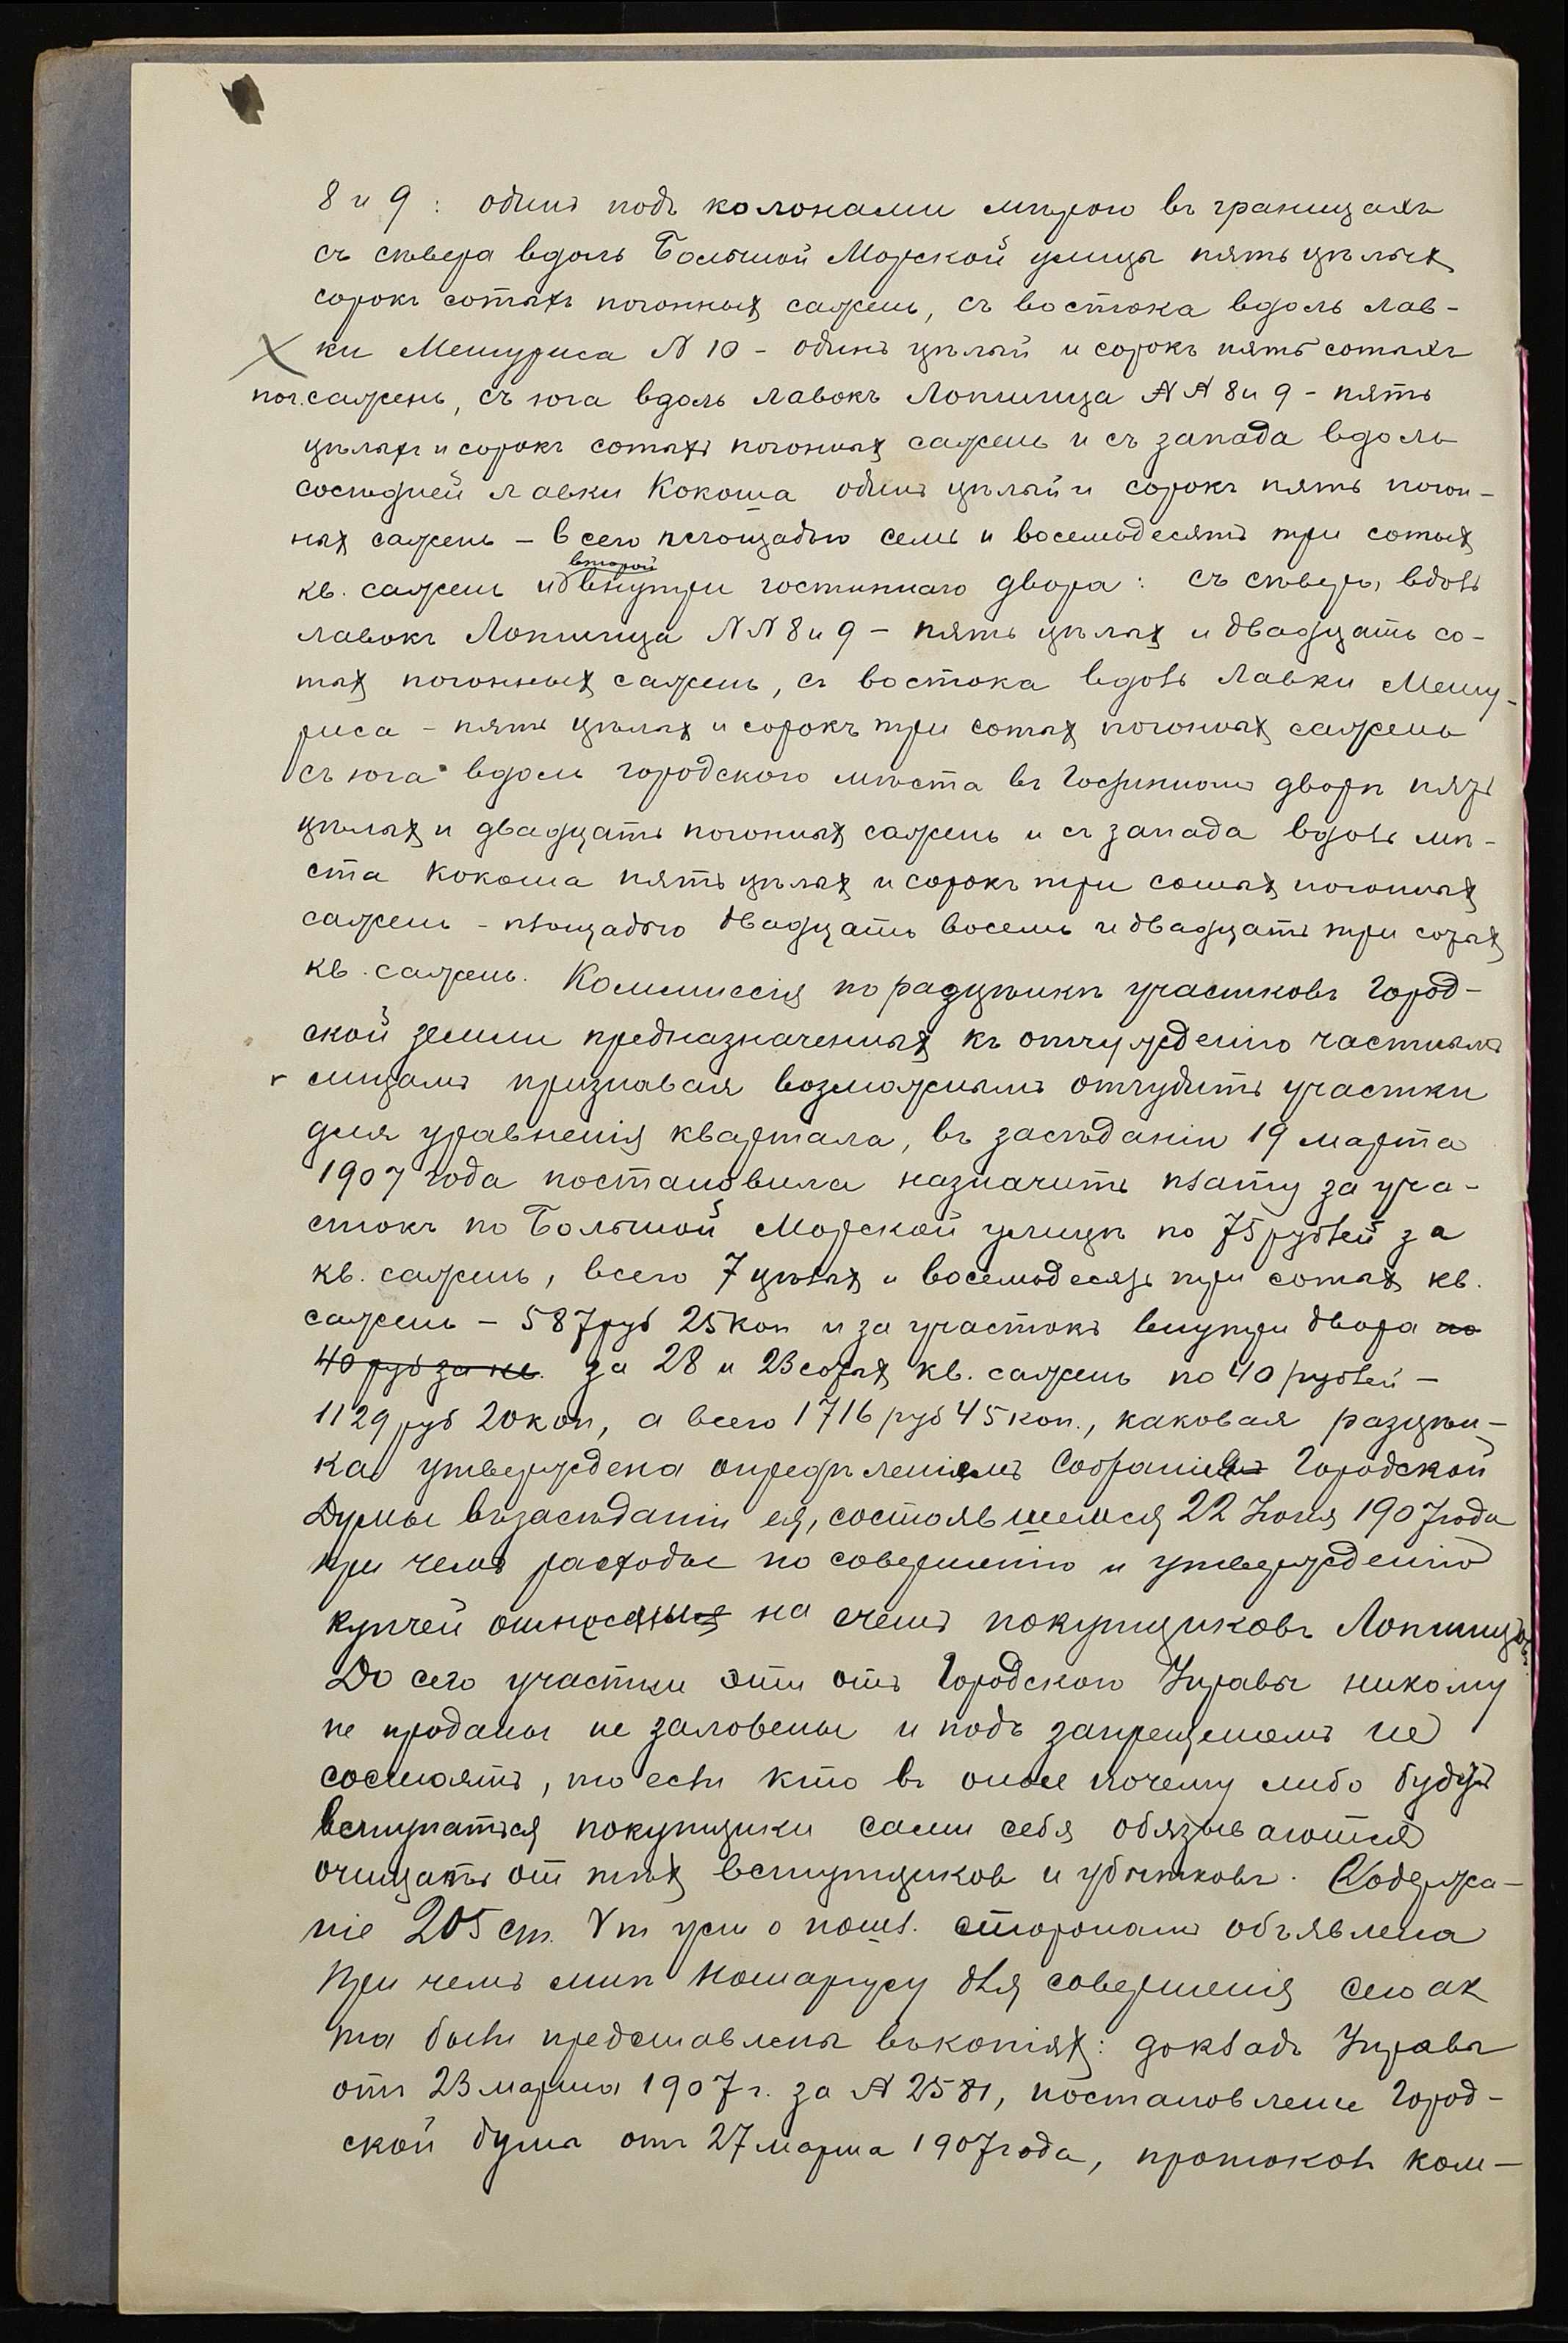 8 и 9 : одинъ подъ колонами мѣрою въ границахъ
съ сѣвера вдоль Большой Морской улицы пять цѣлых
сорокъ сотыхъ погонных сажень, съ востока вдоль лав-
ки Мешуриса N 10 - одинъ цѣлый и сорокъ пять сотыхъ
пог. сажень, съ юга вдоль лавокъ Лопшица NN 8 и 9 - пять
цѣлыхъ и сорокъ сотыхъ погонных сажень и съ запада вдоль
сосѣдней лавки Кокоша одинъ цѣлый и сорокъ пять погон-
ных сажень - всего площадью семь и восемьдесятъ три сотых
второй
кв. сажень и внутри гостиннаго двора : съ сѣвера, вдоль
лавокъ Лопшица NN 8 и 9 - пять цѣлых и двадцать со-
тых погонных сажень, съ востока вдоль лавки Мешу-
риса - пять цѣлых и сорокъ три сотых погонных сажень
съ юга вдоль городского мѣста въ Гостинномъ дворѣ пять
цѣлых и двадцать погонных сажень и съ запада вдоль мѣ-
ста Кокоша пять цѣлых и сорокъ три сотых погонных
сажень - площадью двадцать восемь и двадцать три сотых
кв. сажень. Коммиссія по разцѣнкѣ участковъ Город-
ской земли предназначенных къ отчужденію частнымъ
лицамъ признавая возможнымъ отчудить участки
для уравненія квартала, въ засѣданіи 19 марта
1907 года постановила назначить плату за уча-
стокъ по Большой Морской улицѣ по 75 рублей за
кв. сажень, всего 7 цѣлых и восемьдесятъ три сотых кв.
сажень - 587 руб 25 коп и за участокъ внутри двора по
40 руб за кв. за 28 и 23 сотых кв. сажень по 40 рублей -
1129 руб 20 коп, а всего 1716 руб 45 коп., каковая разцѣн-
ка утверждена опредѣленіемъ Собранія Городской
Думы въ засѣданіи ея, состоявшемся 22 Іюня 1907 года
при чемъ расходы по совершенію и утвержденію
купчей на счетъ покупщиковъ Лопшицъ
До сего участки эти отъ Городского Управы никому
не проданы не заложены и подъ запрещеніемъ не
состоятъ, то если кто въ оные почему либо будутъ
вступаться покупщики сами себя обязываются
очищать от тѣх вступщиков и убытковъ. Содержа-
ніе 205 ст. Уст о пошл. сторонамъ объявлена
при чемъ мнѣ Нотаріусу для совершенія сего ак
та были представлены въ копіях : докладъ Управы
отъ 23 марта 1907 г. за N 2581, постановленіе Город-
ской думы отъ 27 марта 1907 года, протоколъ ком-